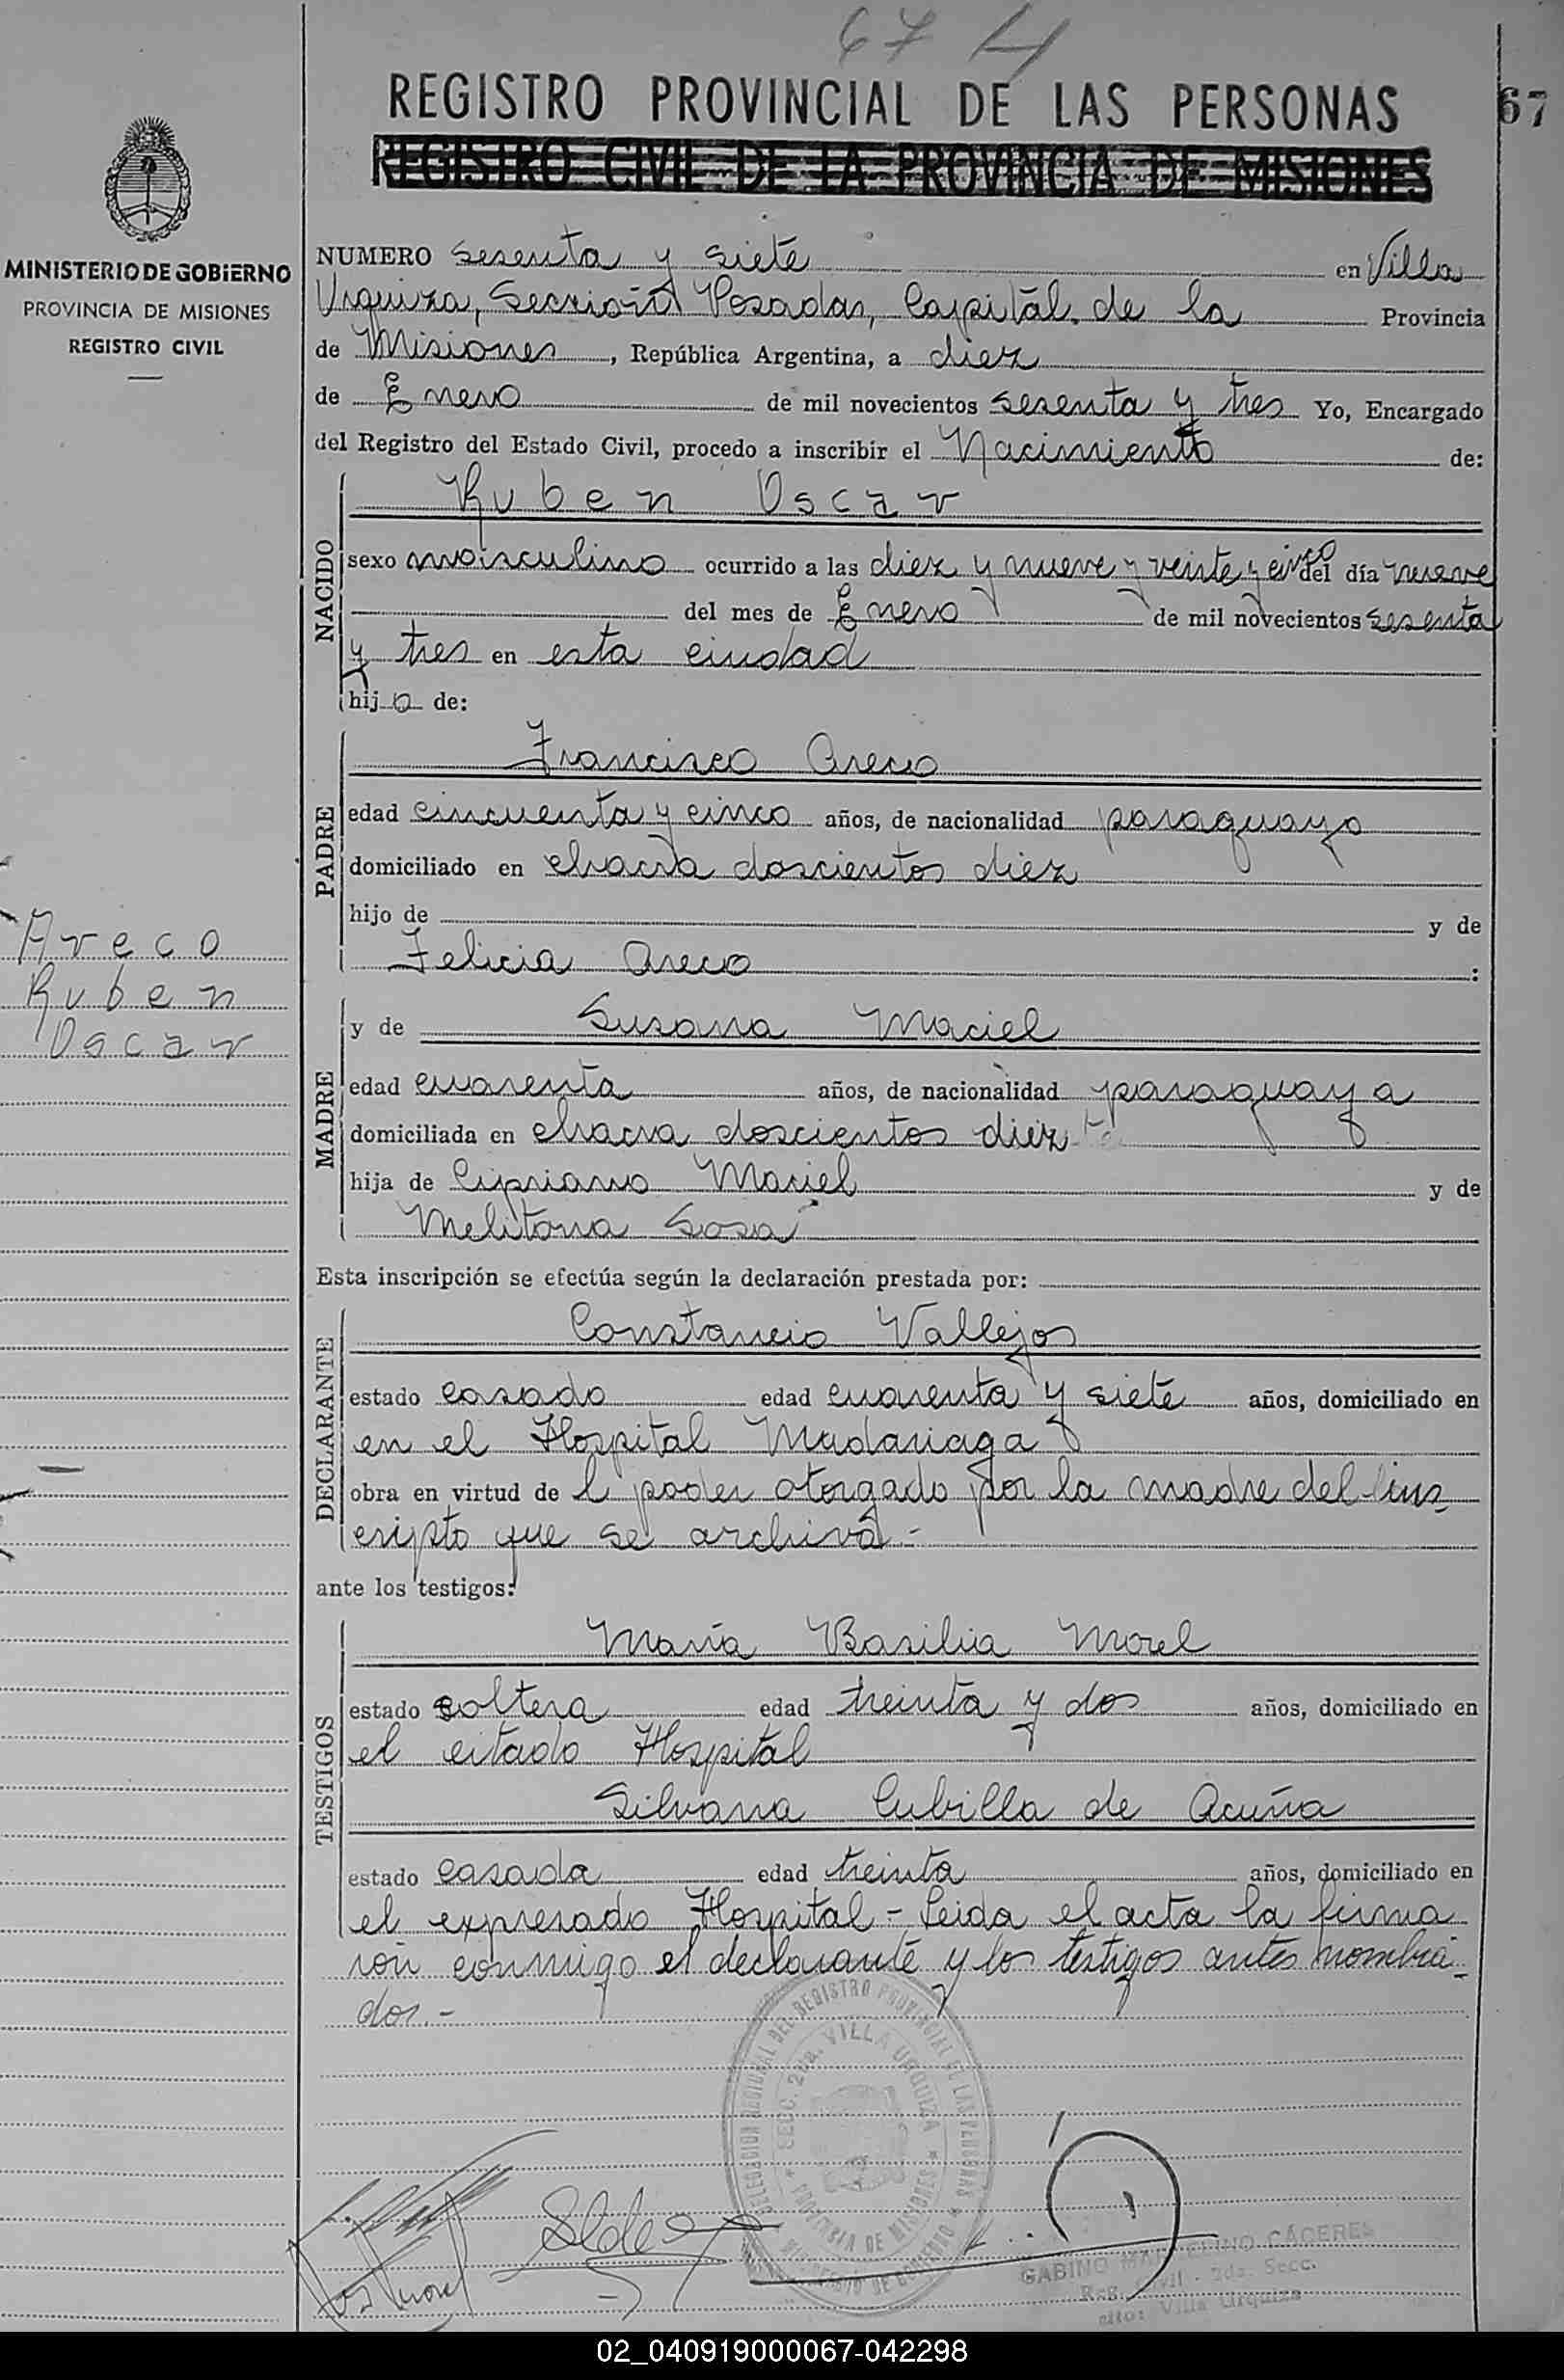 67
REGISTRO PROVINCIAL DE LAS PERSONAS
67
REGISTRO CIVIL DE LA PROVINCIA DE MISIONES
MINISTERIO DE GOBIERNO
PROVINCIA DE MISIONES
REGISTRO CIVIL
NUMERO sesenta y siete en Villa
Urquiza, Sección Posadas, Capital de la Provincia
de Misiones, República Argentina, a diez
de Enero de mil novecientos sesenta y tres Yo, Encargado
del Registro del Estado Civil, procedo a inscribir el Nacimiento de:
NACIDO
Ruben Oscar
sexo masculino ocurrido a las diez y nueve y veinte y cinco del día nueve
del mes de Enero de mil novecientos sesenta
y tres en esta ciudad
hijo de:
PADRE
Francisco Areco
edad cincuenta y cinco años, de nacionalidad paraguayo
domiciliado en chacra doscientos diez
hijo de y de
Felicia Areco :
Areco
Ruben
Oscar
MADRE
y de Susana Maciel
edad cuarenta años, de nacionalidad paraguaya
domiciliada en chacra doscientos diez
hija de Cipriano Maciel y de
Melitona Sosa
Esta inscripción se efectúa según la declaración prestada por:
DECLARANTE
Constancio Vallejos
estado casado edad cuarenta y siete años, domiciliado en
en el Hospital Madariaga
obra en virtud de l poder otorgado por la madre del ins
cripto que se archiva.-
ante los testigos:
TESTIGOS
María Basilia Morel
estado soltera edad treinta y dos años, domiciliado en
el citado Hospital
Silvana Cubilla de Acuña
estado casada edad treinta años, domiciliado en
el expresado Hospital - Leida el acta la firma
ron conmigo el declarante y los testigos antes nombra-
dos.-
DELEGACION REGIONAL DEL REGISTRO PROVINCIAL DE LAS PERSONAS
SECC. 2da. VILLA URQUIZA
PROVINCIA DE MISIONES
MINISTERIO DE GOBIERNO
GABINO MARCELINO CÁCERES
Reg. Civil - 2da. Secc.
Villa Urquiza
02_040919000067-042298